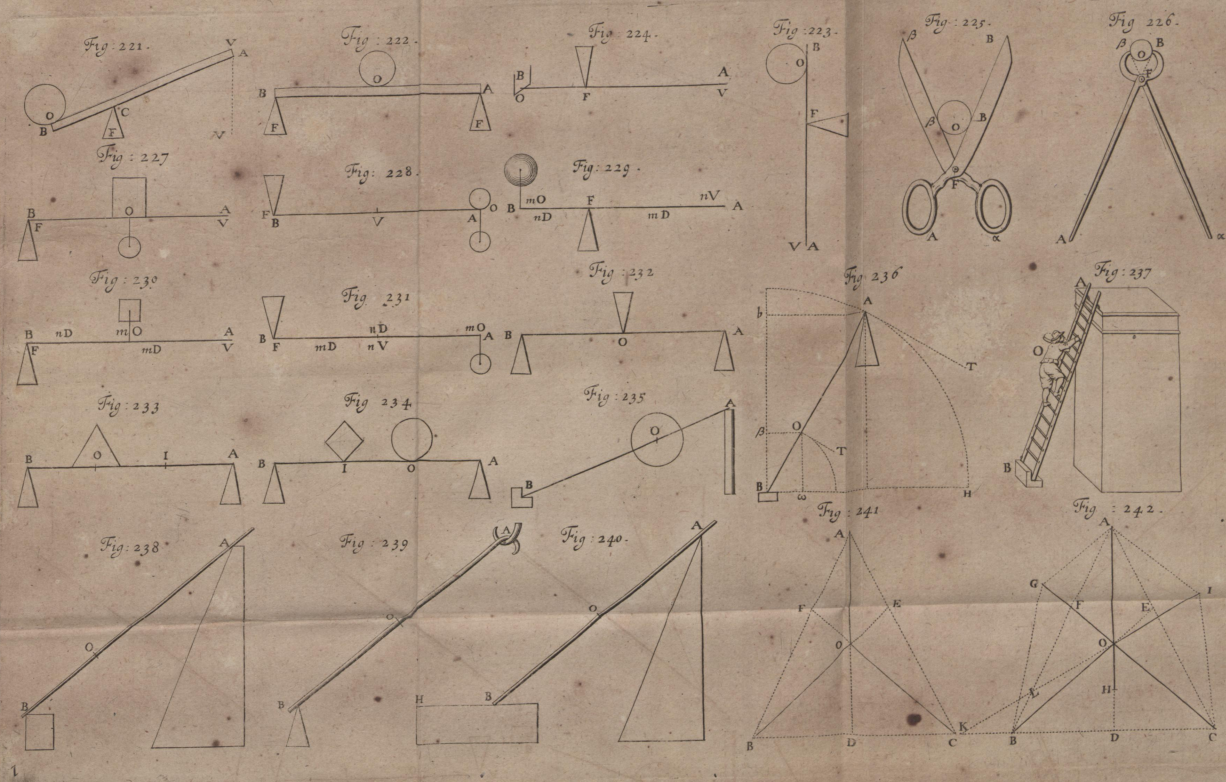 Fig: 221.
V
A
O
B
C
F
N
Fig: 222.
O
B
A
F
F
Fig: 224.
B
O
F
A
V
Fig: 223.
B
O
F
V A
Fig: 225.
β
B
β
O
B
F
A
α
Fig: 226.
β
B
O
F
A
α
Fig: 227
B
F
O
A
V
Fig: 228.
F
B
V
A
O
Fig: 229.
B
mO
nD
F
mD
nV
A
Fig: 230
B
nD
mO
A
F
mD
V
Fig: 231
B
F
mD
nD
nV
mO
A
Fig: 232
B
O
A
Fig: 233
B
O
I
A
Fig: 234
B
I
O
A
Fig: 235
A
O
B
Fig: 236
b
A
T
β
O
T
B
ω
H
Fig: 237
A
O
B
Fig: 238
A
O
B
Fig: 239
A
O
B
Fig: 240.
A
O
H
B
Fig: 241
A
F
E
O
B
D
C
Fig: 242.
A
G
F
E
I
O
L
H
K
B
D
C